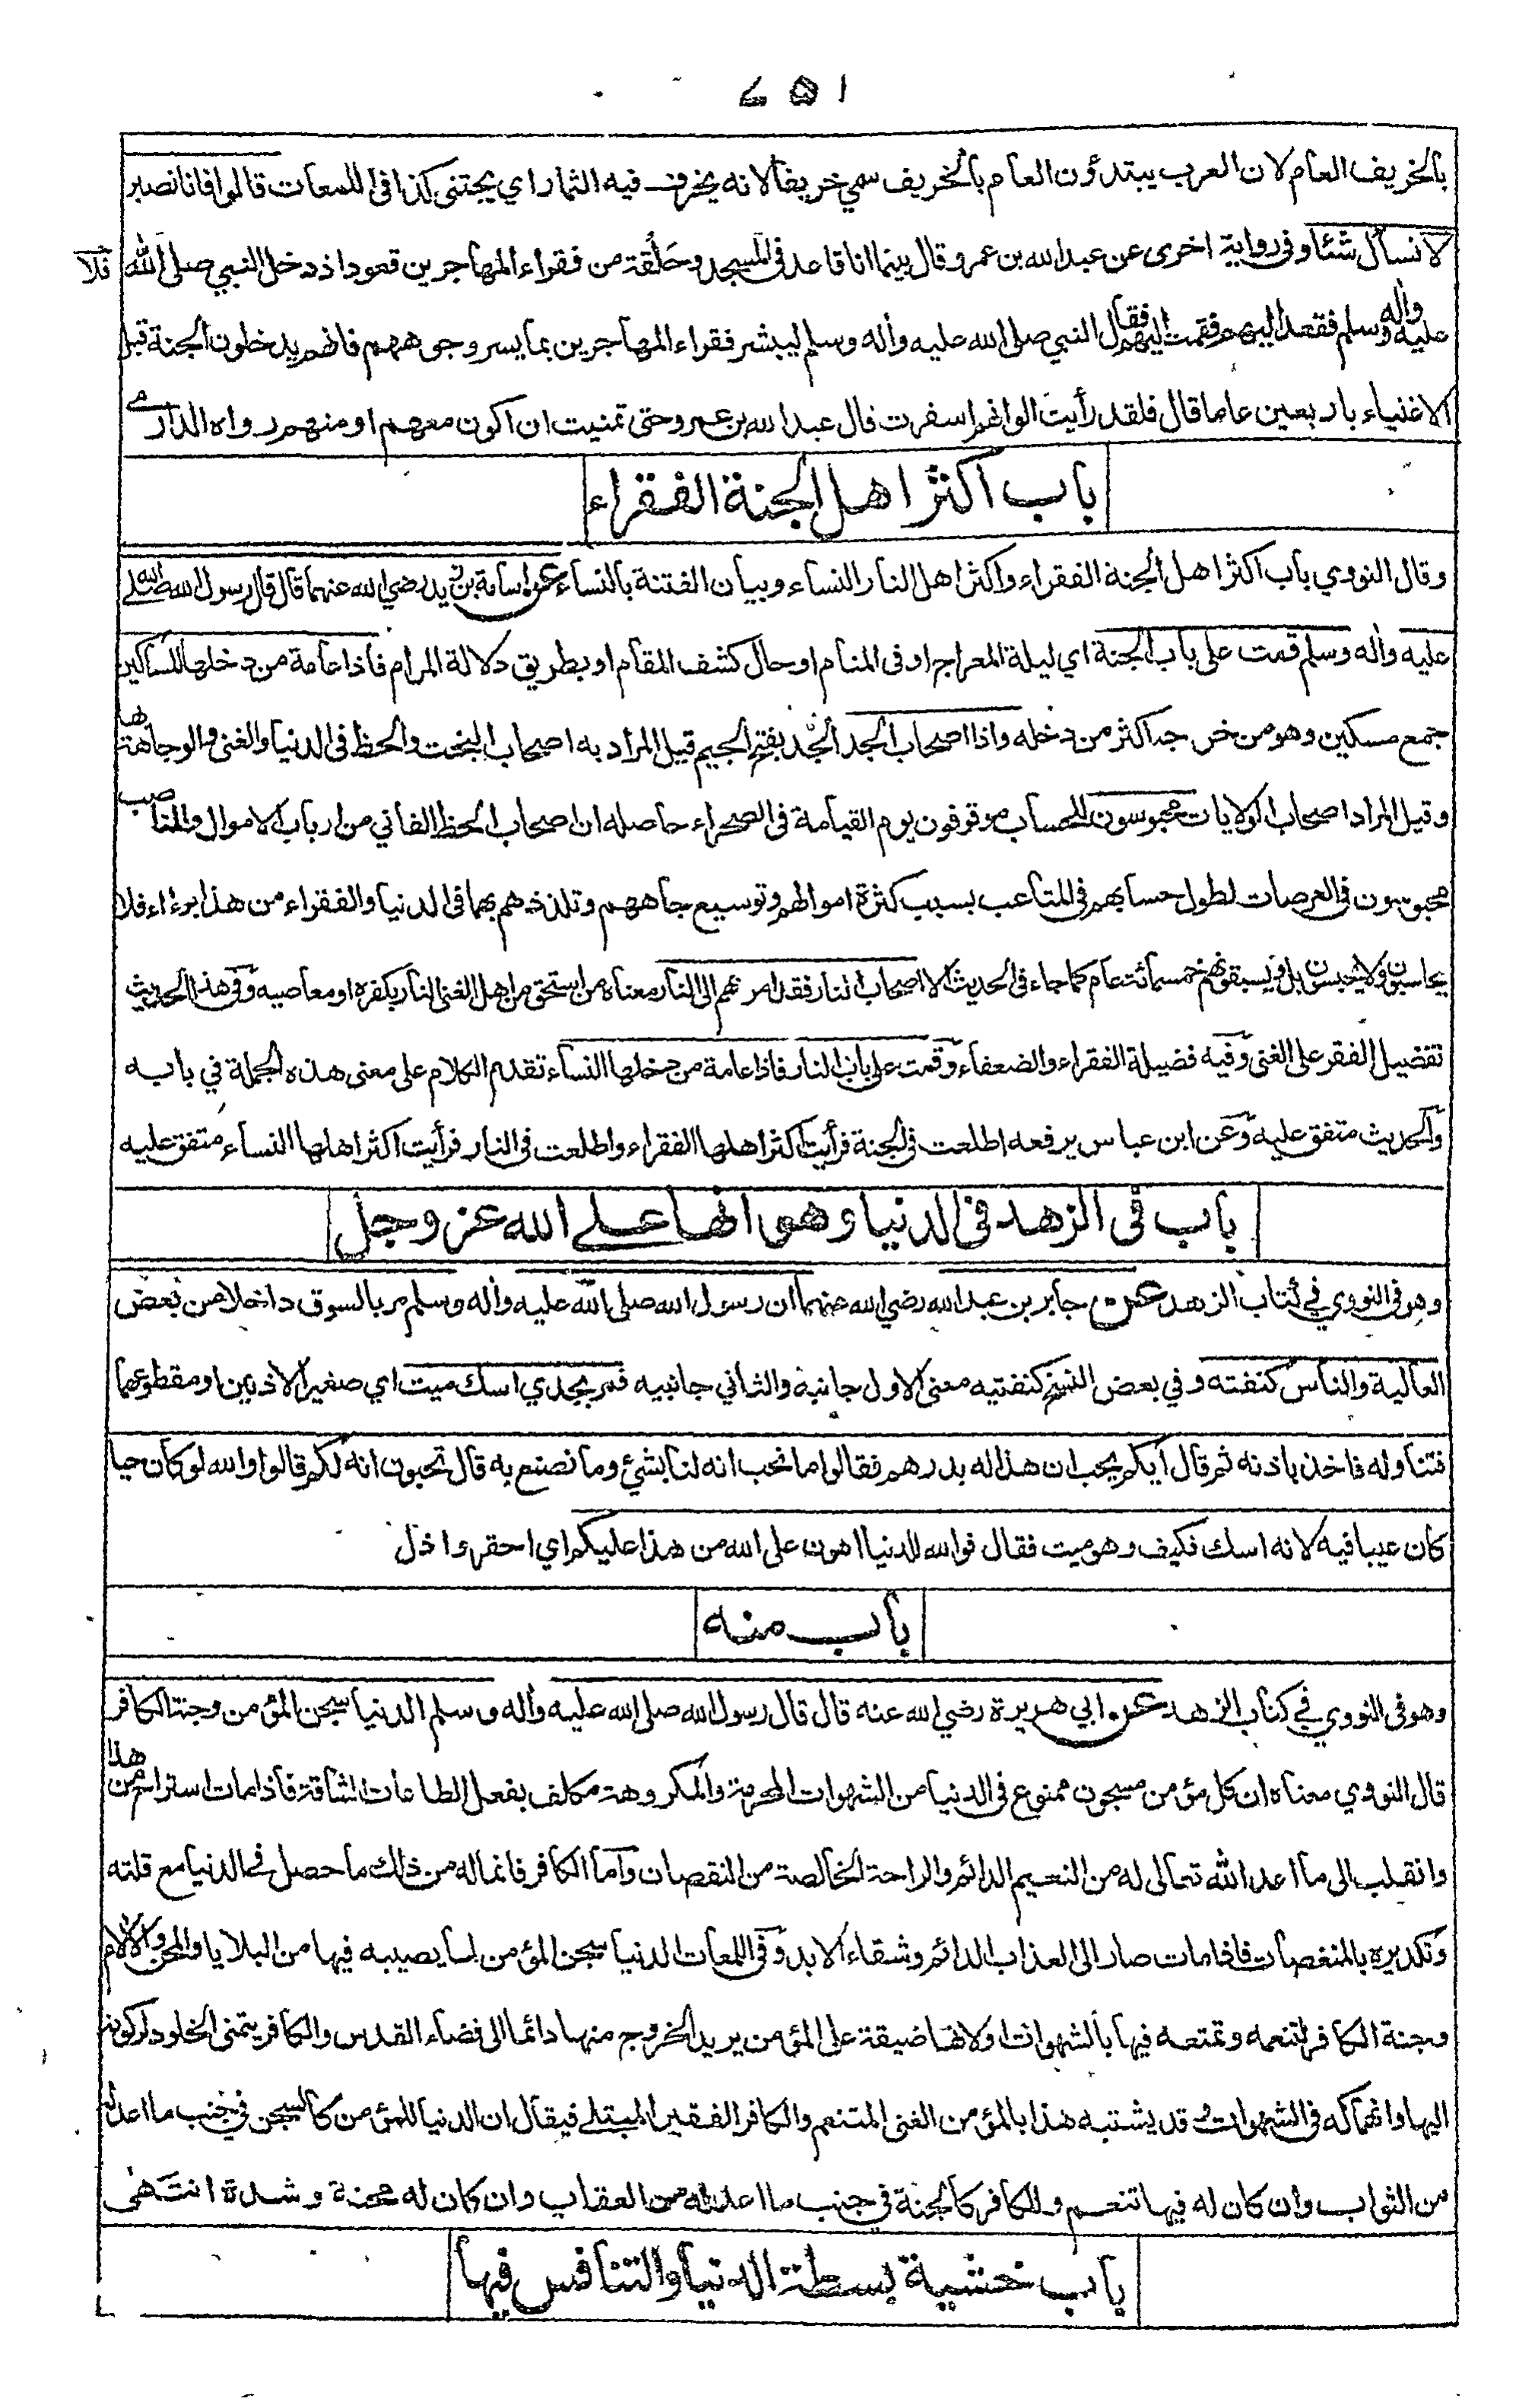 ٦٥١
بالخريف العام لان العرب يبتدؤن العام بالخريف سمي خريفا لانه يخرف فيه الثمار اي يجتنى كذا فى اللمعات قالوا فانا نصبر
لا نسأل شئا وفى رواية اخرى عن عبد الله بن عمرو قال بينما انا قاعد فى المسجد وحَلْقة من فقراء المهاجرين قعود اذ دخل النبي صلى الله
فلا
عليه وأله وسلم فقعد اليهم فقمت اليهم فقال النبي صلى الله عليه وأله وسلم ليبشر فقراء المهاجرين بما يسر وجوههم فانهم يدخلون الجنة قبل
الاغنياء باربعين عاما قال فلقد رأيت الوانهم اسفرت قال عبد الله بن عمرو حتى تمنيت ان اكون معهم او منهم رواه الدارمي
باب اكثر اهل الجنة الفقراء
وقال النووي باب اكثر اهل الجنة الفقراء واكثر اهل النار النساء وبيان الفتنة بالنساء عن اسامة بن زيد رضي الله عنهما قال قال رسول الله صلى الله
عليه وأله وسلم قمت على باب الجنة اي ليلة المعراج او فى المنام او حال كشف المقام او بطريق دلالة المرام فاذا عامة من دخلها المساكين
جمع مسكين وهو من خرجه اكثر من دخله واذا اصحاب الجد الجَد بفتح الجيم قيل المراد به اصحاب البخت والحظ فى الدنيا والغنى والوجاهة بها
وقيل المراد اصحاب الولايات محبوسون للحساب موقوفون يوم القيامة فى الصحراء حاصله ان اصحاب الحظ الفاني من ارباب الاموال والمناصب
محبوسون فى العرصات لطول حسابهم فى المتاعب بسبب كثرة اموالهم وتوسيع جاههم وتلذذهم بهما فى الدنيا والفقراء من هذا براء فلا
يحاسبون ولا يحبسون بل يسبقونهم خمسمائة عام كما جاء فى الحديث الا اصحاب النار فقد امر بهم الى النار معناه من استحق من اهل الغنى النار بكفره او معاصيه وفى هذا الحديث
تفضيل الفقر على الغنى وفيه فضيلة الفقراء والضعفاء وقمت على باب النار فاذا عامة من دخلها النساء تقدم الكلام على معنى هذه الجملة في بابه
والحديث متفق عليه وعن ابن عباس يرفعه اطلعت فى الجنة فرأيت اكثر اهلها الفقراء واطلعت فى النار فرأيت اكثر اهلها النساء متفق عليه
باب فى الزهد فى الدنيا وهوانها على الله عز وجل
وهو فى النووي في كتاب الزهد عن جابر بن عبد الله رضي الله عنهما ان رسول الله صلى الله عليه وأله وسلم مر بالسوق داخلا من بعض
العالية والناس كنفته وفي بعض النسخ كنفتيه معنى الاول جانبه والثاني جانبيه فمر بجدي اسك ميت اي صغير الاذنين او مقطوعهما
فتناوله فاخذ باذنه ثم قال ايكم يحب ان هذا له بدرهم فقالوا ما نحب انه لنا بشئ وما نصنع به قال تحبون انه لكم قالوا والله لو كان حيا
كان عيبا فيه لانه اسك فكيف وهو ميت فقال فوالله للدنيا اهون على الله من هذا عليكم اي احقر واذل
باب منه
وهو فى النووي في كتاب الزهد عن ابي هريرة رضي الله عنه قال قال رسول الله صلى الله عليه وأله وسلم الدنيا سجن المؤمن وجنة الكافر
قال النووي معناه ان كل مؤمن مسجون ممنوع فى الدنيا من الشهوات المحرمة والمكروهة مكلف بفعل الطاعات الشاقة فاذا مات استراح من هذا
وانقلب الى ما اعد الله تعالى له من النعيم الدائم والراحة الخالصة من النقصان وأما الكافر فانما له من ذلك ما حصل فى الدنيا مع قلته
وتكديره بالمنغصات فاذا مات صار الى العذاب الدائم وشقاء الابد وفى اللمعات الدنيا سجن المؤمن لما يصيبه فيها من البلايا والمحن والآلام
وجنة الكافر لتنعمه وتمتعه فيها بالشهوات اولانها ضيقة على المؤمن يريد الخروج منها دائما الى فضاء القدس والكافر يتمنى الخلود لركونه
اليها وانهماكه فى الشهوات وقد يشتبه هذا بالمؤمن الغنى المتنعم والكافر الفقير المبتلى فيقال ان الدنيا للمؤمن كالسجن في جنب ما اعد له
من الثواب وان كان له فيها تنعم وللكافر كالجنة في جنب ما اعد له من العقاب وان كان له محنة وشدة انتهى
باب خشية بسطة الدنيا والتنافس فيها